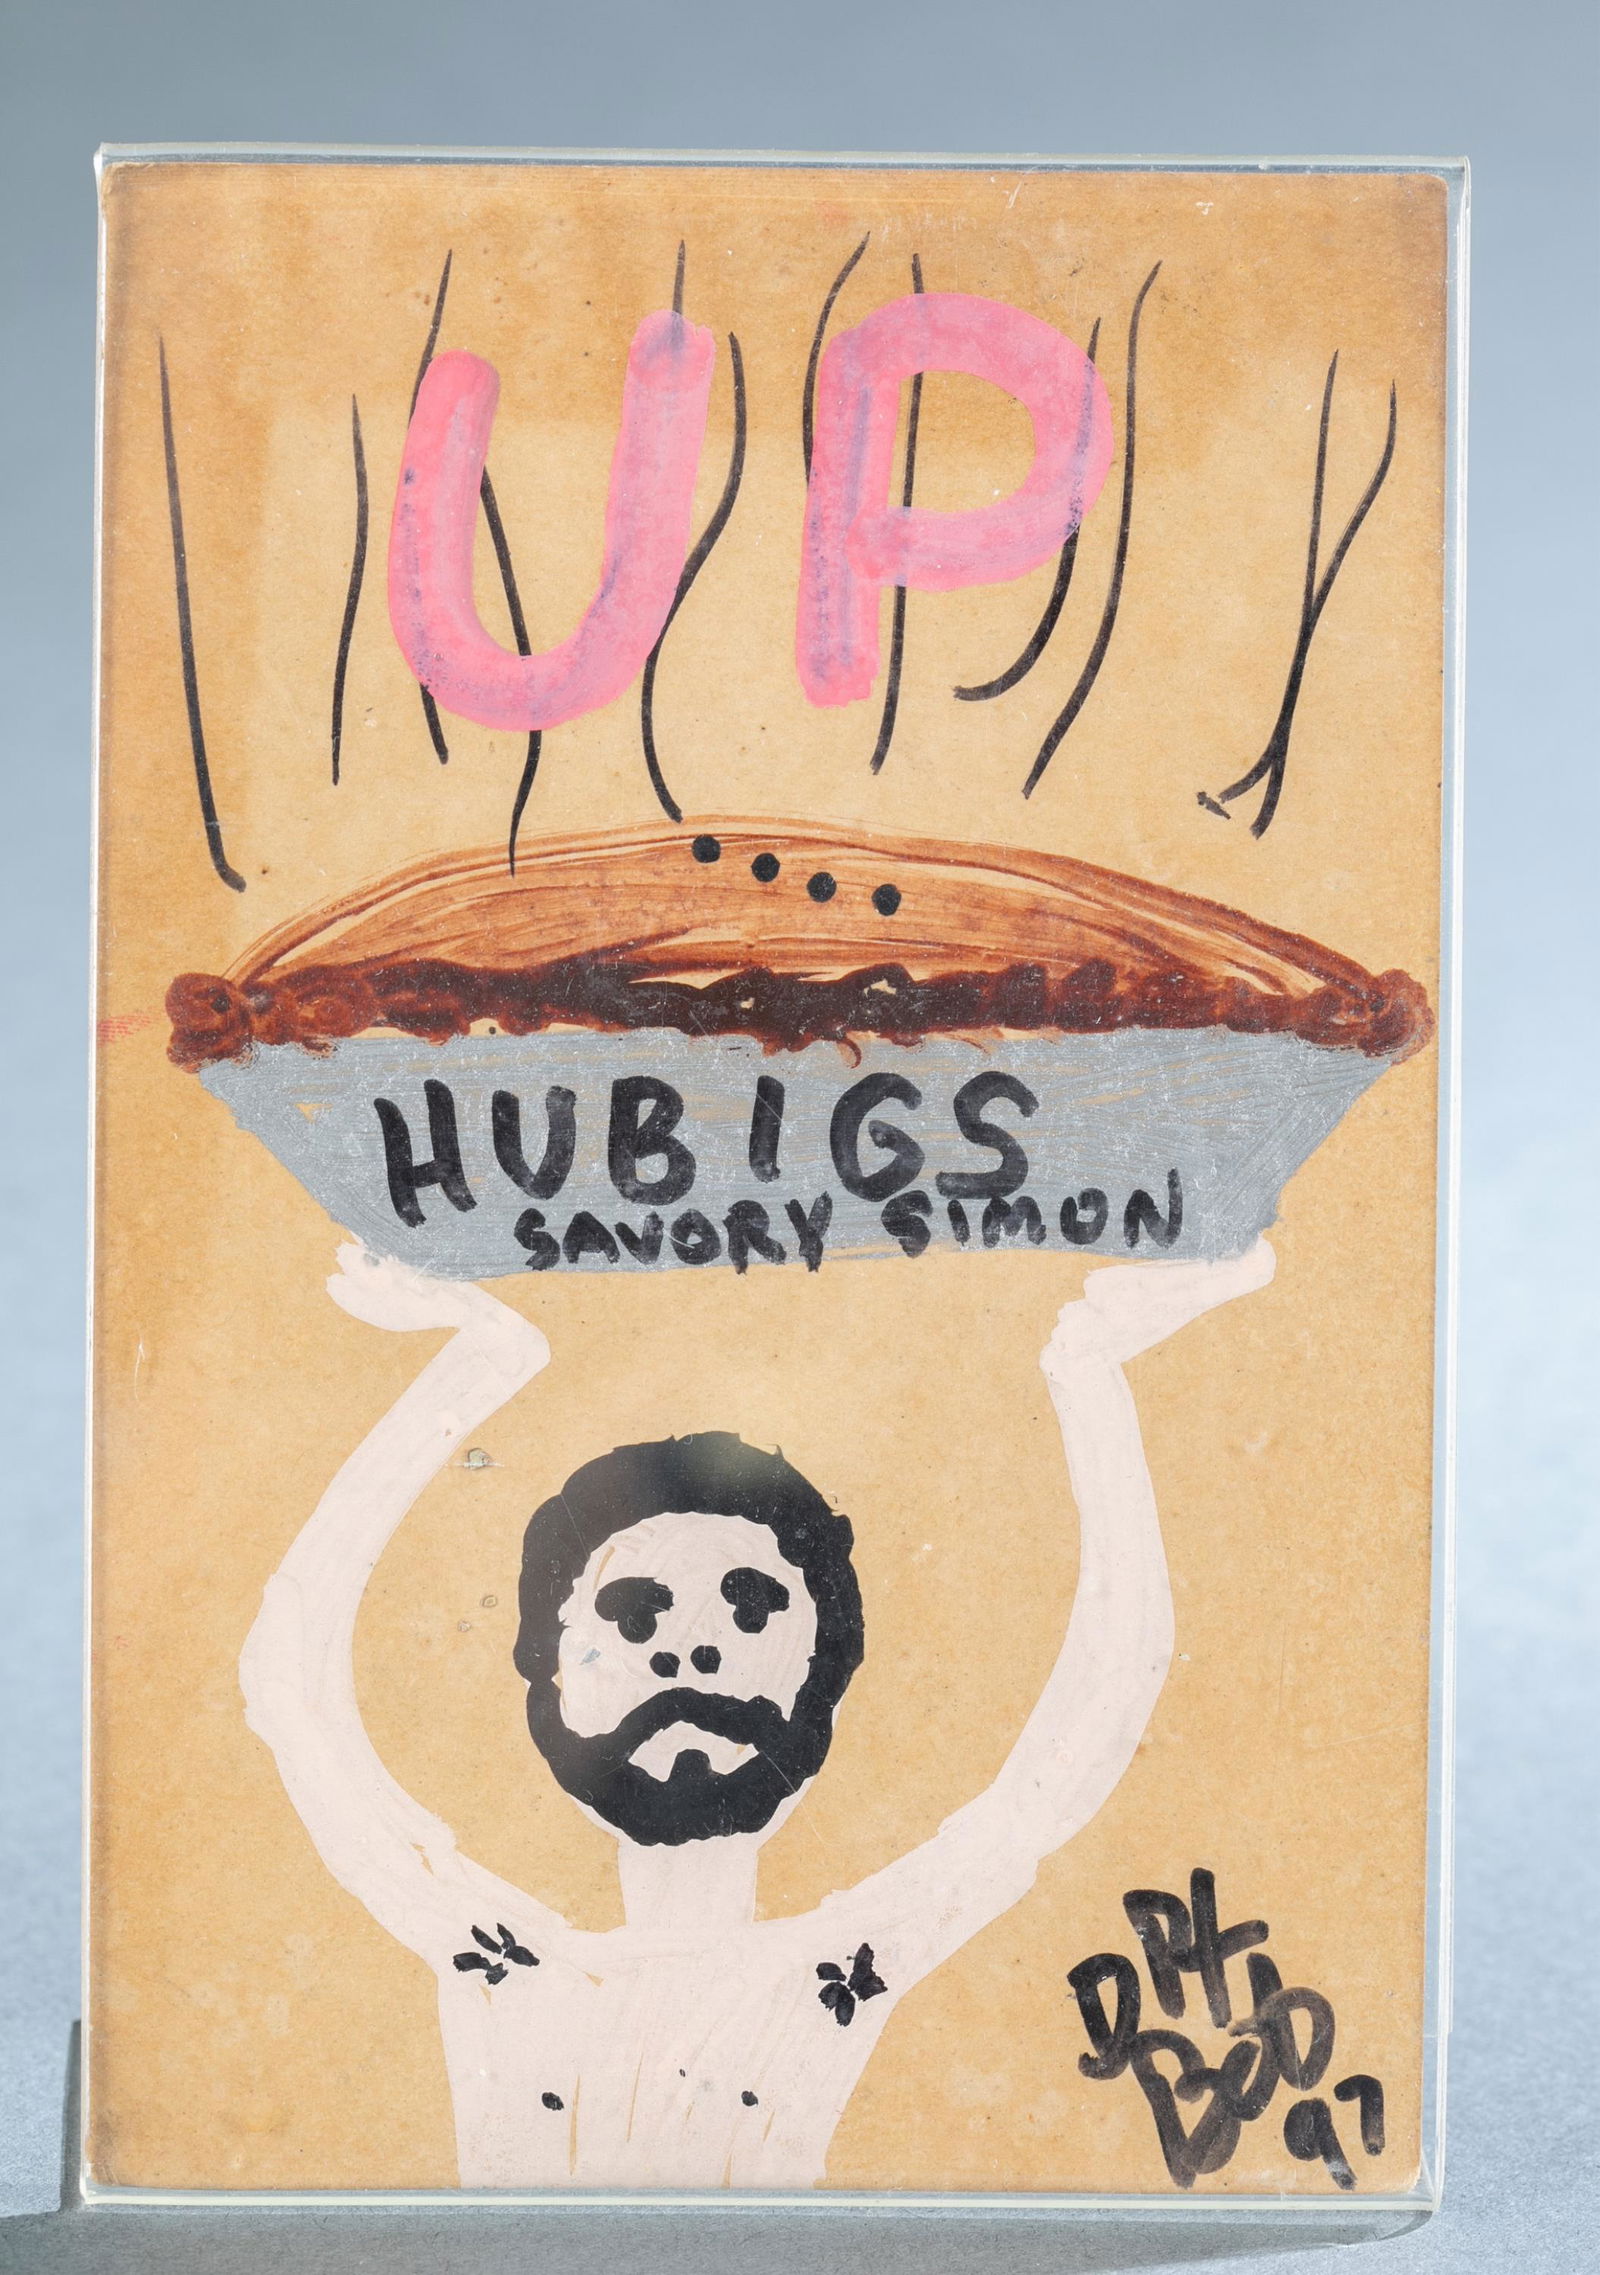 UP
HUBIGS
SAVORY SIMON
DR.
BOB
97